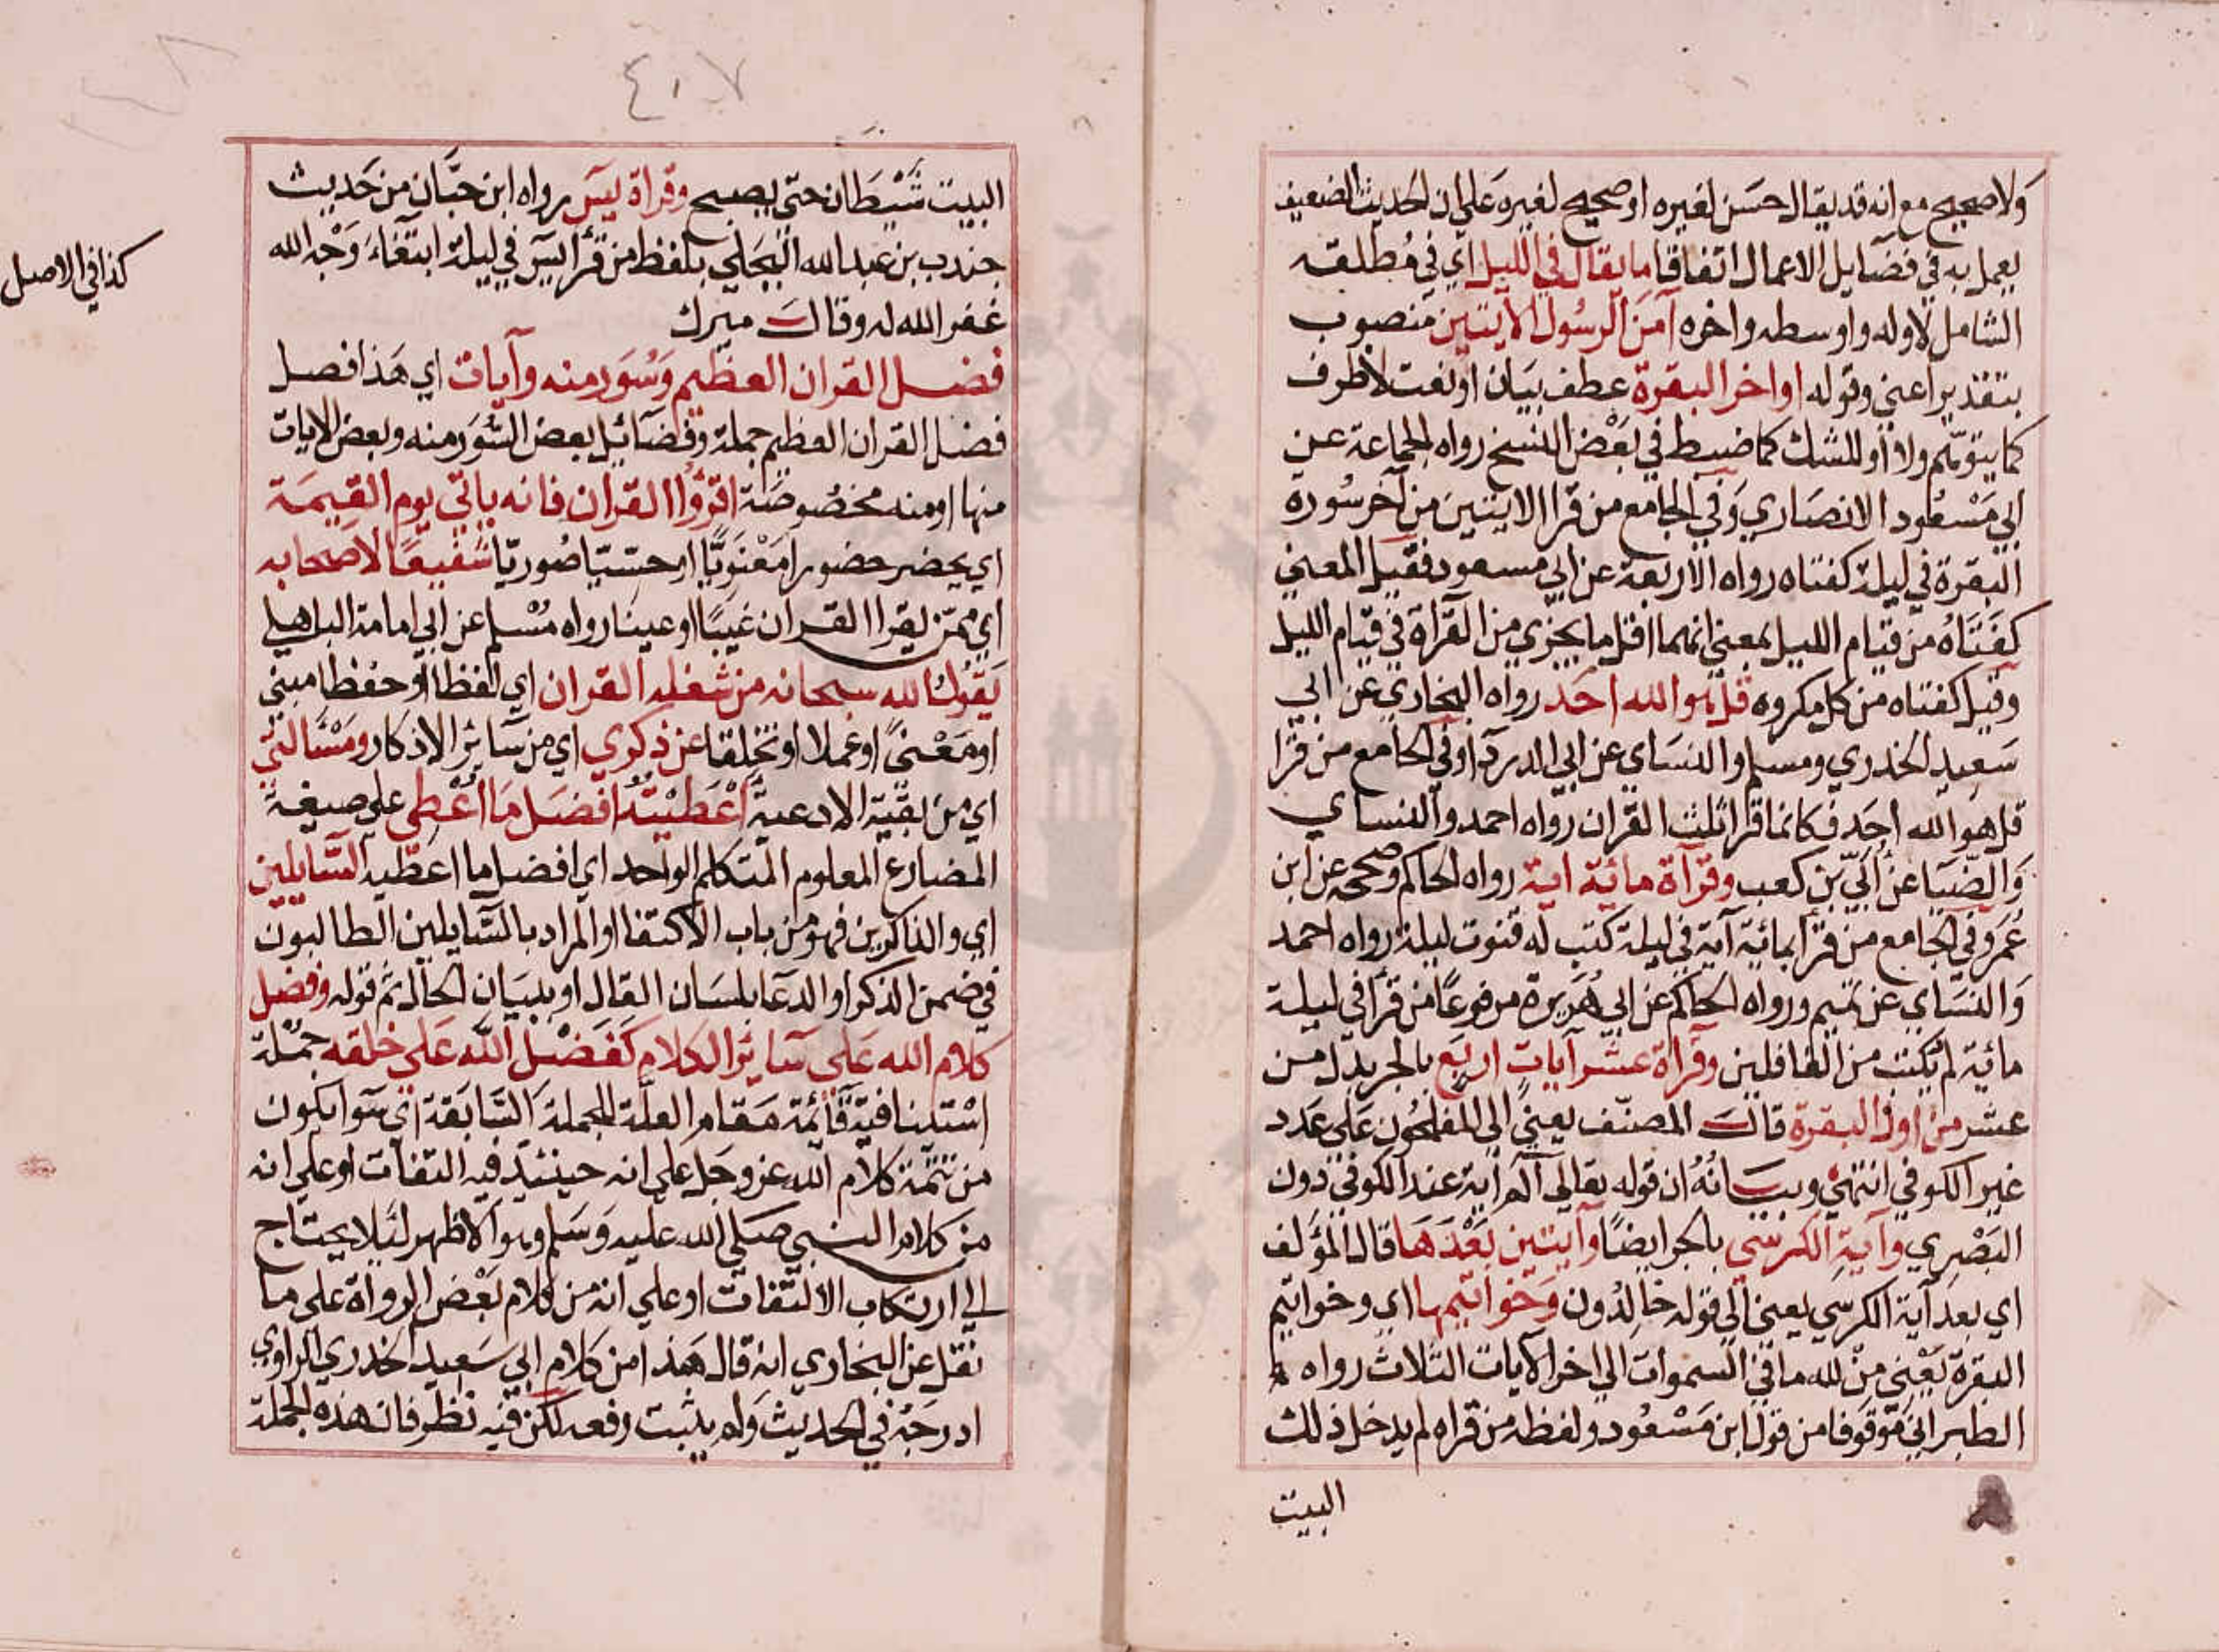 ولا صحيح مع انه قد يقال حسن لغيره او صحيح لغيره على ان الحديث الضعيف
يعمل به في فضايل الاعمال اتفاقا ما يقال في الليل اي في مطلقه
الشامل لاوله واوسطه واخره آمن الرسول الايتين منصوب
بتقدير اعني وقوله اواخر البقرة عطف بيان او نعت لا ظرف
كما يتوهم ولا او للشك كما ضبط في بعض النسخ رواه الجماعة عن
ابي مسعود الانصاري وفي الجامع من قرا الايتين من آخر سورة
البقرة في ليلة كفتاه رواه الاربعة عن ابي مسعود فقيل المعني
كفتاه من قيام الليل بمعني انهما اقل ما يجزي من القرآة في قيام الليل
وقيل كفتاه من كل مكروه قل هو الله احد رواه البخاري عن ابي
سعيد الخدري ومسلم والنساي عن ابي الدردآ وفي الجامع من قرا
قل هو الله احد فكانما قرا ثلث القران رواه احمد والنساي
والضيا عن ابي بن كعب وقرآة مائية اية رواه الحاكم وصححه عن ابن
عمر وفي الجامع من قرأ بمائية آية في ليلة كتب له قنوت ليلة رواه احمد
والنساي عن تميم ورواه الحاكم عن ابي هريرة مرفوعا من قرأ في ليلة
مائية لم يكتب من الغافلين وقرآة عشر آيات اربع بالجر بدل من
عشر من اول البقرة قال المصنف يعني الي المفلحون علي عدد
غير الكوفي انتهي وبيانه ان قوله تعالى آلم اية عند الكوفي دون
البصري وآية الكرسي بالجر ايضا وآيتين بعدها قال المؤلف
اي بعد آية الكرسي يعني الي قوله خالدون وخواتيمها اي وخواتيم
البقرة يعني من لله ما في السموات الي اخر الآيات الثلاث رواه
الطبراني موقوفا من قول ابن مسعود ولفظه من قراه لم يدخل ذلك
البيت
٤١٧
البيت شيطان حتى يصبح وقراة يس رواه ابن حبان من حديث
جندب بن عبد الله البجلي بلفظ من قرأ يس في ليلة ابتغاء وجه الله
غفر الله له وقال ميرك
كذا في الاصل
فضل القران العظيم وسور منه وآيات اي هذا فصل
فضل القران العظيم جملة وفضائل بعض السور منه وبعض الايات
منها او منه مخصوصة اقرؤا القران فانه ياتي يوم القيمة
اي يحضر حضورا معنويا او حسيا صوريا شفيعا لاصحابه
اي ممن يقرا القران غيبا او عينا رواه مسلم عن ابي امامة الباهلي
يقول الله سبحانه من شغله القران اي لفظا او حفظا مبني
او معني او عملا او تخلقا عن ذكري اي من سائر الاذكار ومسألتي
اي من بقية الادعية أعطيته افضل ما اعطي علي صيغة
المضارع المعلوم المتكلم الواحد اي افضل ما اعطيه السايلين
اي والذاكرين فهو من باب الاكتفا او المراد بالسايلين الطالبون
في ضمن الذكر او الدعا بلسان القال او ببيان الحال ثم قوله وفضل
كلام الله على سائر الكلام كفضل الله على خلقه جملة
استئنافية قائمة مقام العلة للجملة السابقة اي سوا يكون
من تتمة كلام الله عز وجل علي انه حينئيذ فيه التفات او علي انه
من كلام النبي صلي الله عليه وسلم وهو الاظهر لئلا يحتاج
الي ارتكاب الالتفات او علي انه من كلام بعض الرواة على ما
نقل عن البخاري انه قال هذا من كلام ابي سعيد الخدري الراوي
ادرجه في الحديث ولم يثبت رفعه لكن فيه نظر فان هذه الجملة